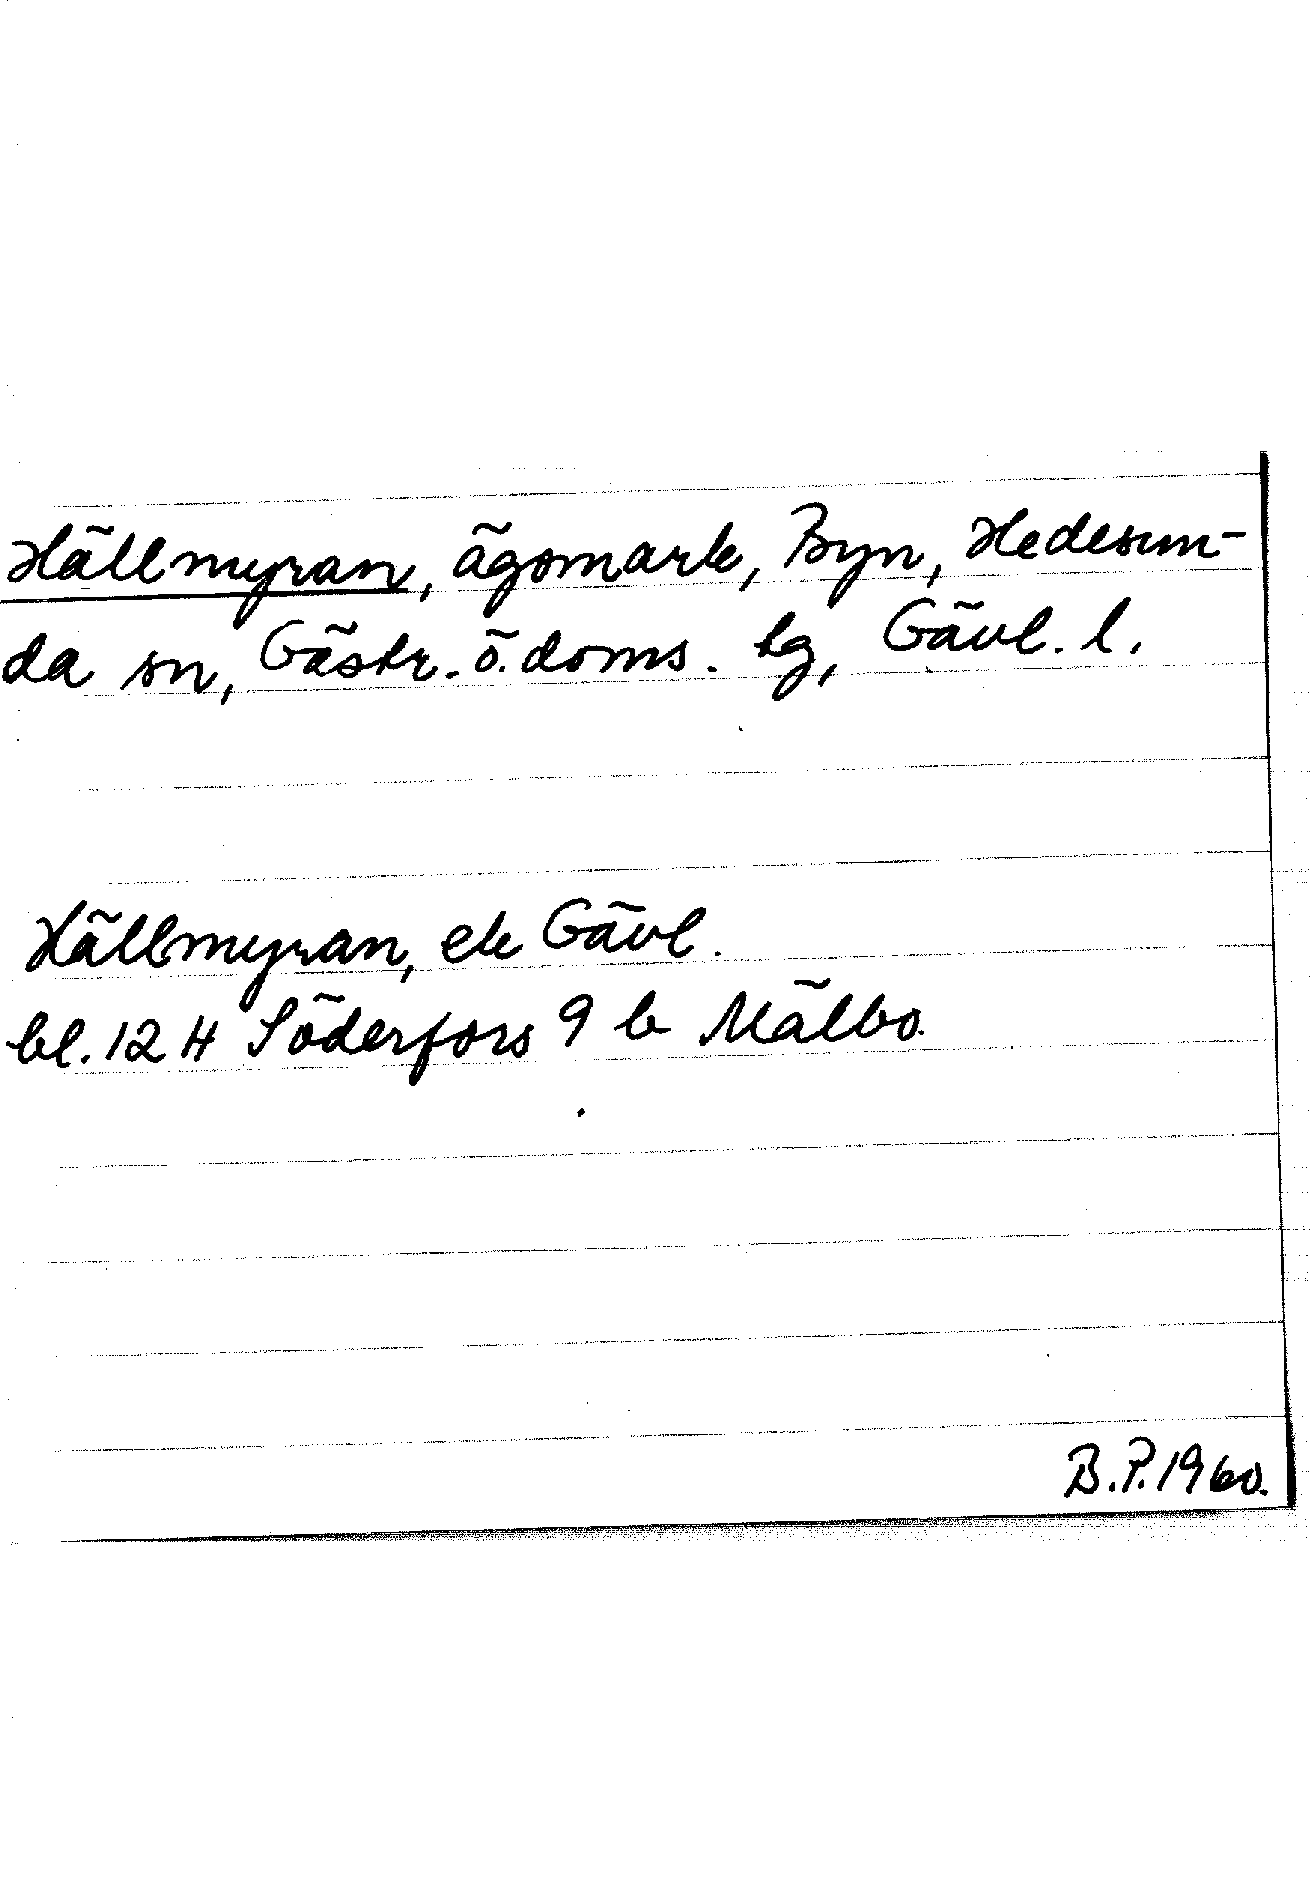 Hällmyran, ägomark, Byn, Hedesun-
da sn, Gästr. ö. doms. tg, Gävl. l.
Hällmyran, ek Gävl.
bl. 12 H Söderfors 9 b Mälbo.
B.P. 1960.